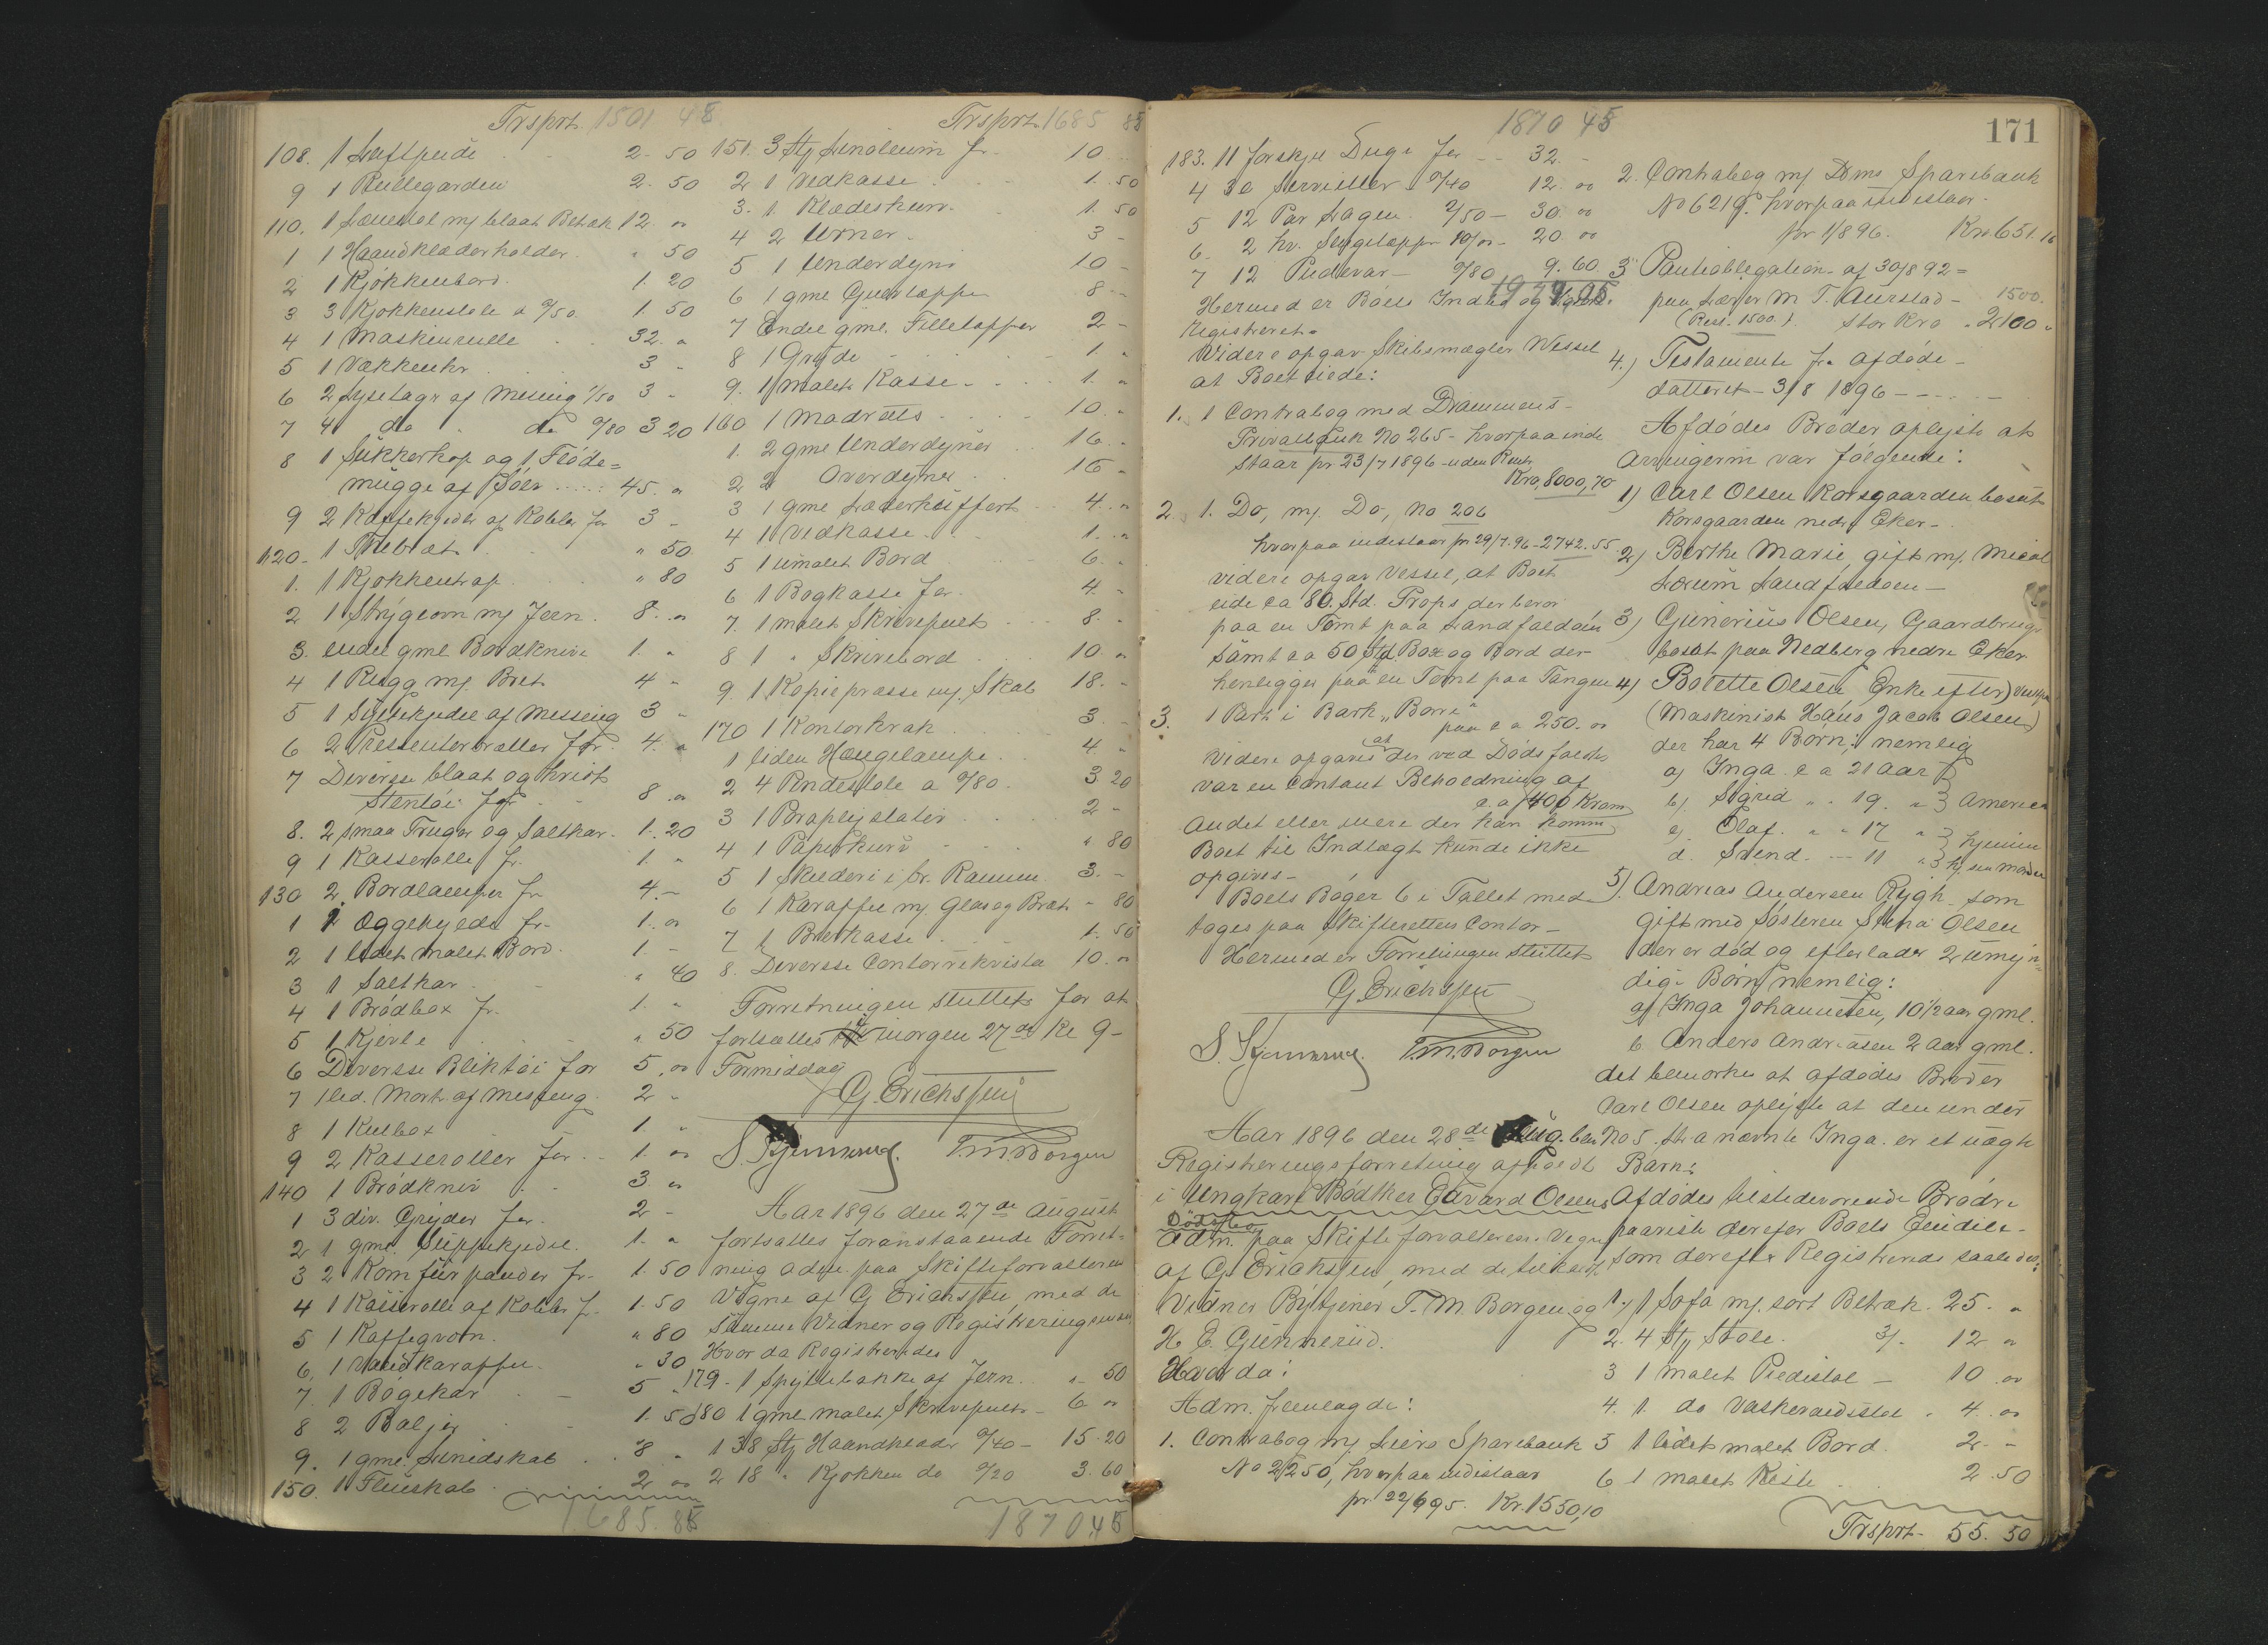 Trsprt. 1501 48
108. 1 Luftpude 2. 50
9 1 Rullegarden 2. 50
110. 1 Lænestol m/ blaat Betræk 12. "
1 1 Haandklæderholder. " 50
2 1 Kjøkkenbord. 1. 20
3 3 Kjøkkenstole a 0/50 1. 50
4 1 Maskinrulle 32. "
5 1 Vækkeuhr 3 "
6 2 Lysestager af Messing 1/50 3 "
7 4 do do 0/80 3 20
8 1 Sukkerkop og 1 Fløde=
mugge af Sølv 45. "
9 2 Kaffekjedler af Kobber for 3 -
120. 1 " 50
1. 1 Kjøkkentrap " 80
2 1 Strygeovn m/ Jern. 8. "
3. endel gml Bordknive 1. "
4 1 Rugg m/ Bret 4 -
5 1 Syltekjedel af Messing 3 "
6 2 Presenterbretter for. 4. "
7 Diverse blaat og hvidt
Stentøi for 8. "
8. 2 smaa Truger og Saltkar. 1. 20
9 1 Kasserolle fr. 1. "
130 2 Bordlamper fr 4. -
1 Æggehylde fr. 1. "
2 1 lidet malet Bord. 1. -
3 1 Saltkar " 40
4 1 Brødbox fr. 1. "
5 1 Kjevle " 50
6 Diverse Bliktøi for 5. "
7 1 lid. Mort. af Messing 2 -
8 1 Kulbox 1. "
9 2 Kasseroller for 1. "
140 1 Brødkniv 3. "
1 3 div. Gryder for. 2 -
2 1 gml. Suppekjedel. 1. "
3 2 Komfürpander fr. 1. 50
4 1 Kasserolle af Kobber f. 1. 50
5 1 Kaffegværn. " 80
6. 1 Vandkaraffel. " 30
7. 1 Bøgekar 5 "
8 2 Baljer 1. 50
9. 1 gml. Linedskab 8 "
150. 1 Flueskab 2 "
1685. 88
Trsprt. 1685 88
151. 3 Stk Linoleum fr. 10
2 1 Vedkasse 1. 50
3. 1. Klædeskurv. 1. 50
4 2 Urner. 3 -
5 1 Underdyne 10 -
6 1 gml Gulvtæppe 8 -
7 Endel gml. Filletæpper 2 -
8 1 Gryde 1. "
9. 1 malet Kasse 1. "
160 1 Madrats 10. "
1. 2 gml Underdyner 16. -
2 2 Overdyner 16 "
3 1 gml Læderkuffert 4. "
4 1 Vedkasse 1. "
5 1 umalet Bord 6. "
6 1 Bogkasse for. 4. -
7. 1 malet Skrivepult 8. -
8 1 " Skrivebord 10. "
9. 1 Kopiepresse m/ Skab 18. -
170 1 Kontorkrak 3. -
1 liden Hængelampe. 4. "
2 4 Pindestole a 0/80. 3 20
3 1 Paraplystativ 2 -
4 1 Papirkurv " 80
5 1 Skilderi i br. Ramme. 3. -
6 1 Karaffel m/ Glas og Bret - 80
7 1 Brevkasse 1. 50
8. Diverse Contorrekvisita 10. "
Forretningen sluttet for at
fortsættes i morgen 27de Kl 9-
Formiddag
G. Erichssen
T. M. Borgen
Aar 1896 den 27de August
fortsattes foranstaaende Forret=
ning adm. paa Skifteforvalterens
Vegne af G Erichssen, med de
samme Vidner og Registreringsmænd
Hvor da Registreredes
179 - 1 Spyttebakke af Jern. " 50
180 1 gml malet Skrivepult - 6 "
1 38 Stk Haandklæder 0/40 - 15. 20
2 18 " Kjøkken do 0/20 3. 60
1870,45
1870 45
171
183. 11 forskjel Duge for 32. -
4 30 Servietter 0/40 12. "
5 12 Par Lagen. 2/50 - 30. "
6. 2 hv. Sengetæpper 10/00 - 20. "
7 12 Pudevar - 0/80 9. 60
1979.05
Hermed er Boets Indbo og
Registreret.
Videre opgav Skibsmægler Wessel
at Boet eiede:
1. 1 Contrabog med Drammens
Privatbank No 265 - hvorpaa inde
staar pr 23/7 1896 - uden Rente
Kro, 8000,70
2. 1. Do, m/ Do, No 206
hvorpaa indestaar pr 29/7. 96 - 2742. 55
videre opgav Vessel, at Boet
eide ca 80. Std. Props der beror
paa en Tomt paa Landfaldøen
samt ca 50 Std. Box og Bord der
henligger paa en Tomt paa Tangen
3. 1 Part i Bark "Borre"
paa c a 250. "
Videre opgaves at der ved Dødsfaldet
var en contant Beholdning af
c. a 1400 Kroner
Andet eller mere der kan komme
Boet til Indtægt kunde ikke
opgives -
Boets Bøger 6 i Tallet med=
toges paa Skifterettens Contor -
Hermed er Forretningen sluttet
G. Erichssen
T. M. Borgen
Aar 1896 den 28de Aug. blev
Registreringsforretning afholdt
i Ungkarl Bødker Edvard Olsens
Dødsbo
Adm. paa Skifteforvalterens Vegne
af G. Erichssen, med de tilkaldte
Vidner Bytjener T. M. Borgen og
H. E. Gunnerud.
Hvor da:
Adm. fremlagde:
1. Contrabog m/ Liers Sparebank
No 2250, hvorpaa indistaar
pr. 22/6 95. Kr. 1550,10
2. Contrabog m/ Dms Sparebank
No 6219. hvorpaa indestaar
pr 1/8 96. Kr. 651. 16
3. Pantiobligation - af 30/8 92 =
paa Lærer M. T. Aurstad - 1500.
(Rest. 1500.) stor Kro " 2100 "
4.) Testamente fra afdøde -
datteret - 3/8 1896 -
Afdødes Brøder oplyste at
Arvingerne var følgende:
1) Carl Olsen Korsgaarden bosat
Korsgaarden nedre Eker -
2) Berthe Marie, gift m/
Landfaldøen -
3) Gunerius Olsen, Gaardbruger
bosat paa Nedberg nedre Eker
4) Bolette Olsen Enke efter
(Maskinist Hans Jacob Olsen)
der har 4 Børn: nemlig
a) Inga c a 21 Aar
b) Sigrid " " 19. " } America
c) Olaf. " " 17 " } hjemme
d. Svend. " 11 " } hs. sin moder
5). Andreas Andersen Rygh som
gift med Søsteren Stina Olsen
der er død og efterlader 2 umyn=
dige Børn nemlig:
a) Inga Johannesen, 10 1/2 aar gml.
b Anders Andreasen 2 Aar gml.
det bemærkes at afdødes Broder
Carl Olsen oplyste at den under
No 5. Lit a nævnte Inga er et uægte
Barn:
Afdødes tilstedeværende Brødre
paaviste derefter Boets Eiendele -
som derefter Registreredes saaledes:
1.) 1 Sofa m/ sort Betræk. 25. "
2. 4 Stk Stole. 3/. 12 "
3 1 malet Piedistal - 10 "
4. 1. do Vaskevandsstol " 4. "
5 1 lidet malet Bord. 2. -
6 1 malet Kiste 2. 50
Trsprt - 55. 50